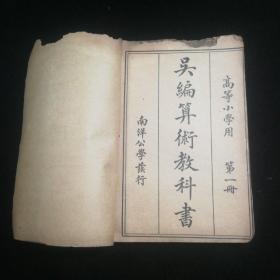 高等小學用 第一冊
吳編算術教科書
南洋公學發行